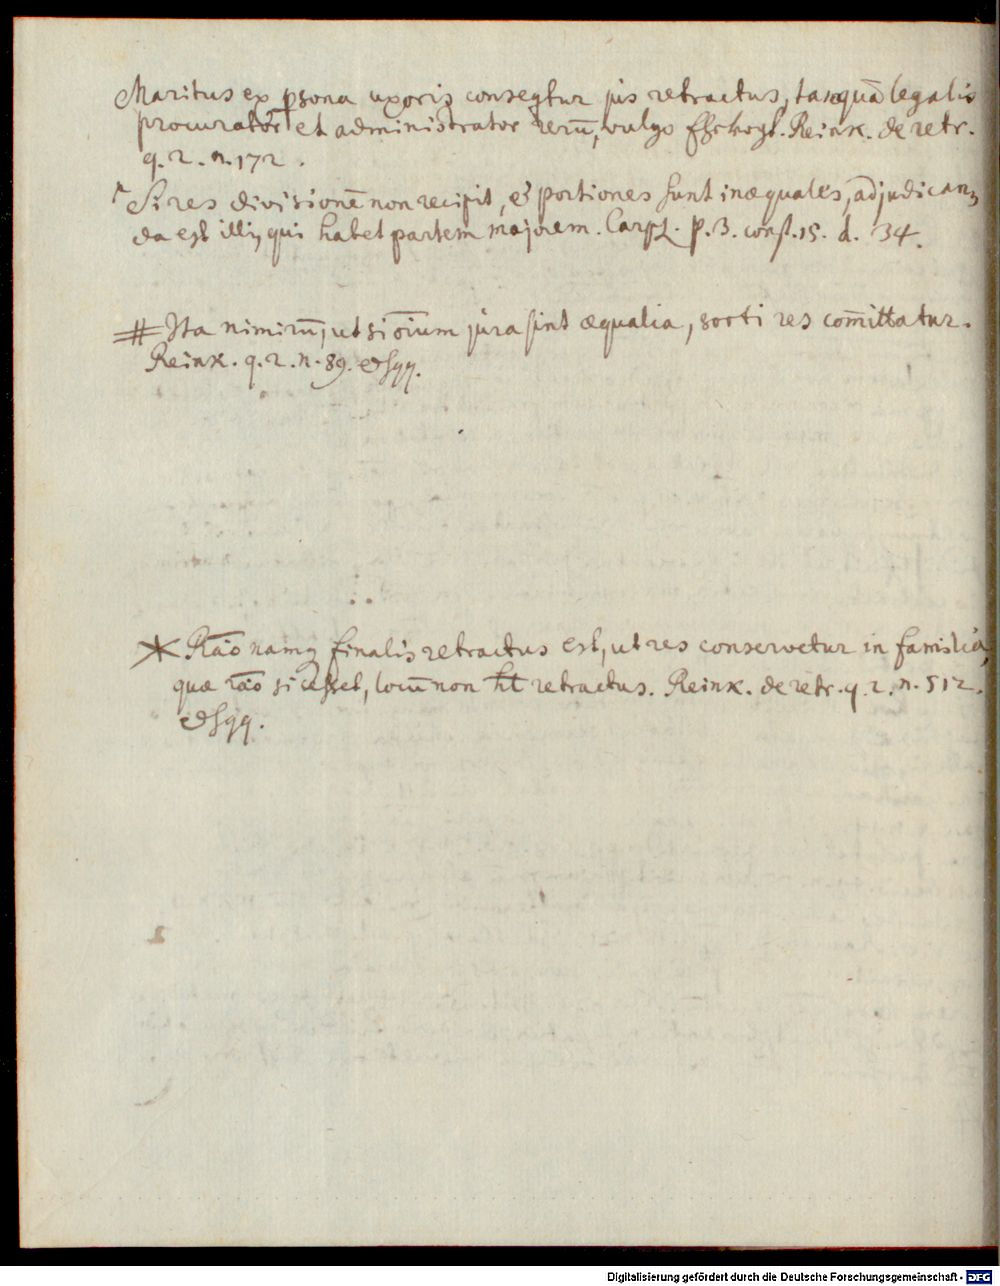 Maritus ex p̱sona uxoris conseqtur jus retractus, tanquā legalis
procurator et administrator rerū, vulgo Ehevogt. Reink. de retr.
q. 2. n. 172.
Si res divisionē non recipit, et portiones sunt inæquales, adjudican-
da est illi, qui habet partem majorem. Carpz. p. 3. const. 15. d. 34.
# Ita nimirū, ut si oīum jura sint æqualia, sorti res com̄ittatur.
Reink. q. 2. n. 89. et sqq.
* Rāo namq finalis retractus est, ut res conservetur in familia,
quæ rāo si cesset, locū non ht retractus. Reink. de retr. q. 2. n. 512.
et sqq.
Digitalisierung gefördert durch die Deutsche Forschungsgemeinschaft - DFG